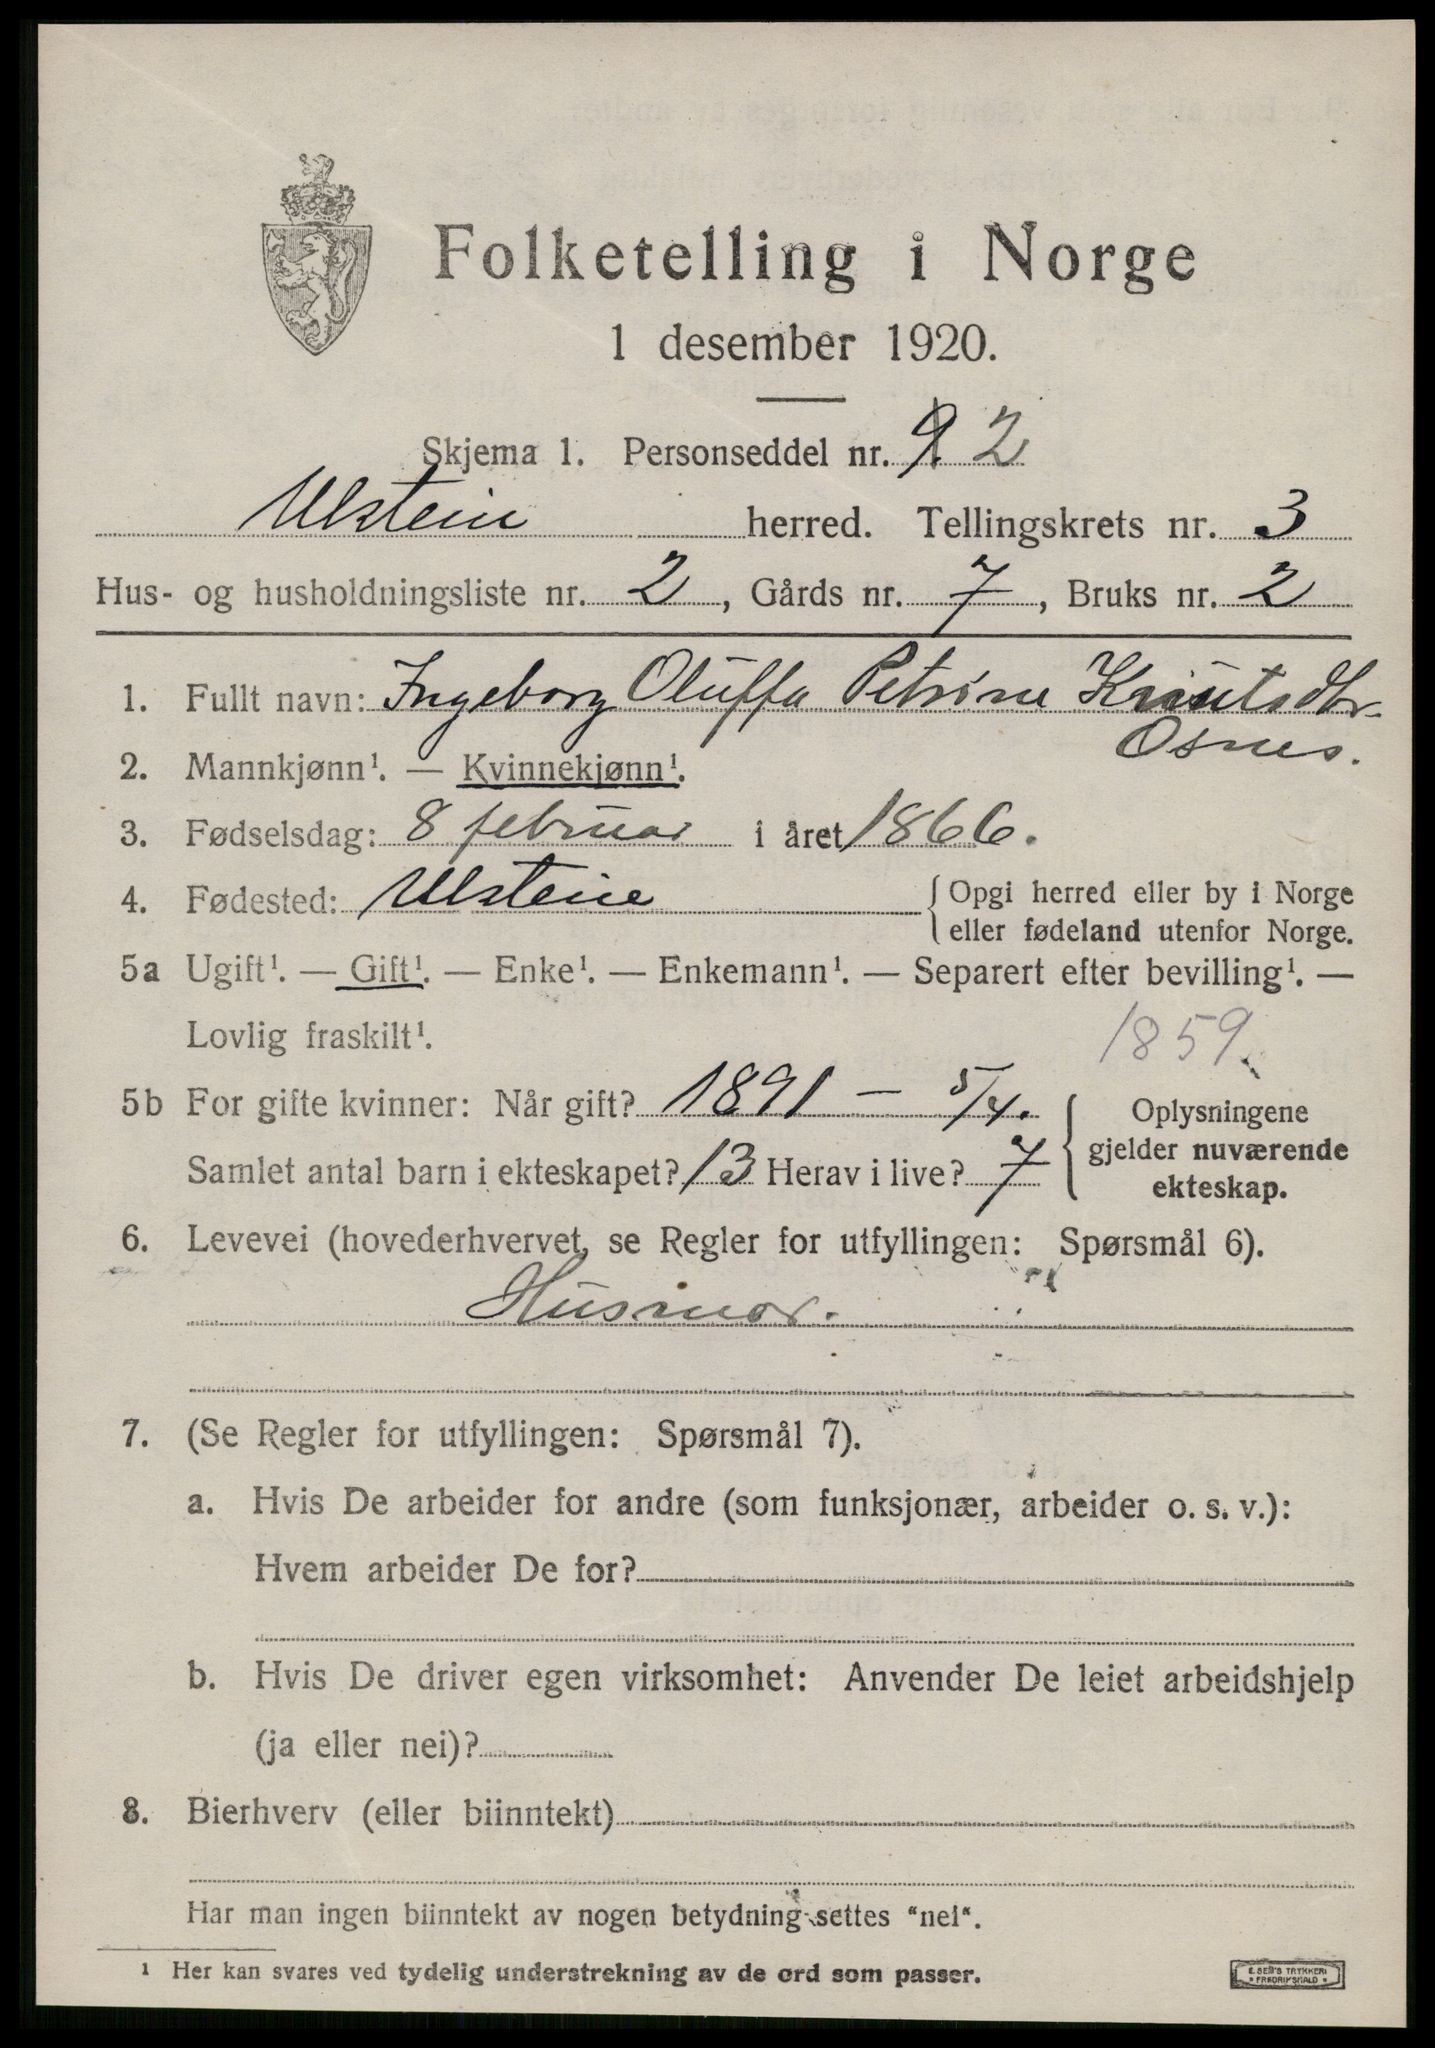 Folketelling i Norge
1 desember 1920.
Skjema 1. Personseddel nr. 9. 2
Ulstein herred. Tellingskrets nr. 3
Hus- og husholdningsliste nr. 2, Gårds nr. 7, Bruks nr. 2
1. Fullt navn: Ingeborg Oluffa Petrine Knutsdtr.
Osnes.
2. Mannkjønn¹. — Kvinnekjønn¹.
3. Fødselsdag: 8 februar i året 1866.
4. Fødested: Ulstein { Opgi herred eller by i Norge
eller fødeland utenfor Norge.
5a Ugift¹. — Gift¹. — Enke¹. — Enkemann¹. — Separert efter bevilling¹. —
Lovlig fraskilt¹. 1859
5b For gifte kvinner: Når gift? 1891 — 5/4. { Oplysningene
Samlet antal barn i ekteskapet? 13 Herav i live? 7 gjelder nuværende
ekteskap.
6. Levevei (hovederhvervet, se Regler for utfyllingen: Spørsmål 6).
Husmor.
7. (Se Regler for utfyllingen: Spørsmål 7).
a. Hvis De arbeider for andre (som funksjonær, arbeider o. s. v.):
Hvem arbeider De for?
b. Hvis De driver egen virksomhet: Anvender De leiet arbeidshjelp
(ja eller nei)?
8. Bierhverv (eller biinntekt)
Har man ingen biinntekt av nogen betydning settes "nei".
¹ Her kan svares ved tydelig understrekning av de ord som passer.
E. SEM'S TRYKKERI
FREDRIKSHALD